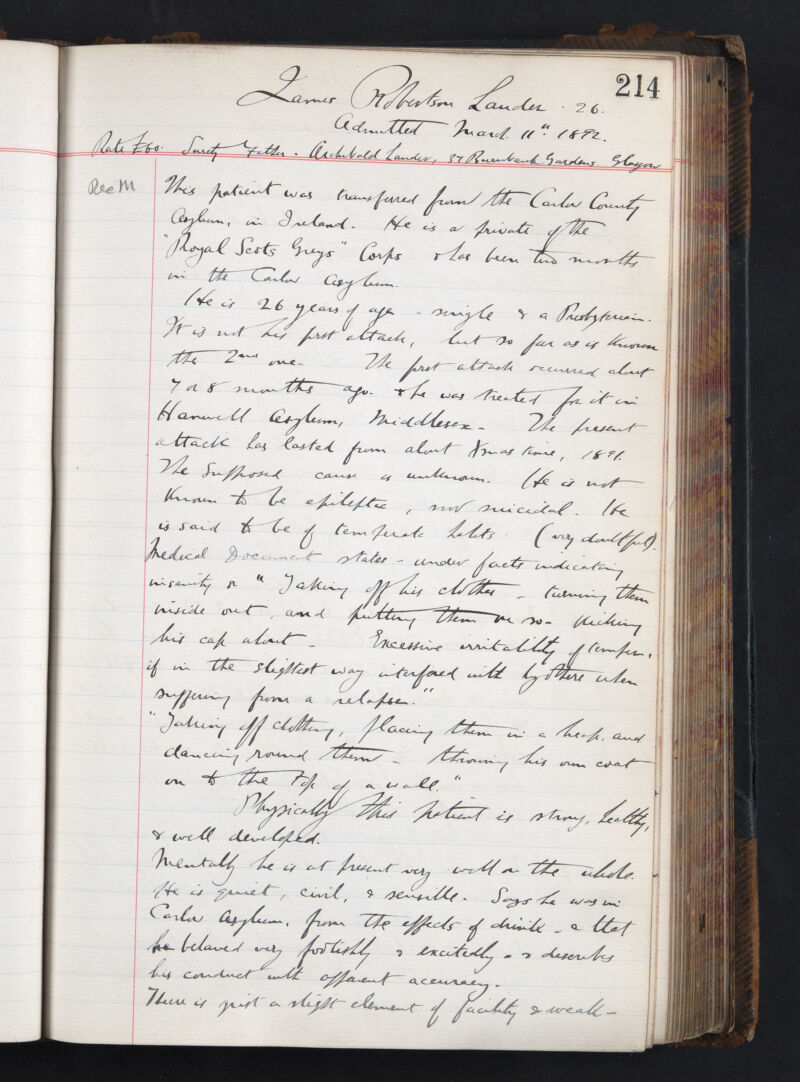 214
James Robertson Lauder. 26.
Admitted March 11th. 1892.
Rate £60. Surety Father. Archibald Lauder, 37 Burnbank Gardens Glasgow
Rec M
This patient was transferred from the Carlow County
Asylum, in Ireland. He is a private of the
"Royal Scots Greys" Corps & has been two months
in the Carlow Asylum.
He is 26 years of age - single & a Presbyterian.
It is not his first attack, but so far as is known
the 2nd one. The first attack occurred about
7 or 8 months ago. & he was treated for it in
Hanwell Asylum, Middlesex - The present
attack has lasted from about Xmas time, 1891.
The Supposed cause is unknown. He is not
known to be epileptic, nor suicidal. He
is said to be of temperate habits. (very doubtful).
Medical Document states - under facts indicating
insanity "Taking off his clothes - turning them
inside out, and putting them on so - kicking
his cap about - Excessive irritability of temper,
if in the slightest way interfered with by others when
suffering from a relapse."
"Taking off clothing, placing them in a heap, and
dancing round them - throwing his own coat
on to the top of a wall."
Physically this patient is strong, healthy,
& well developed.
Mentally he is at present very well on the whole.
He is quiet, civil, & sensible. Says he was in
Carlow Asylum, from the effects of drink - & that
he behaved very foolishly & excitedly - & describes
his conduct with apparent accuracy.
There is just a slight element of facility & weak-